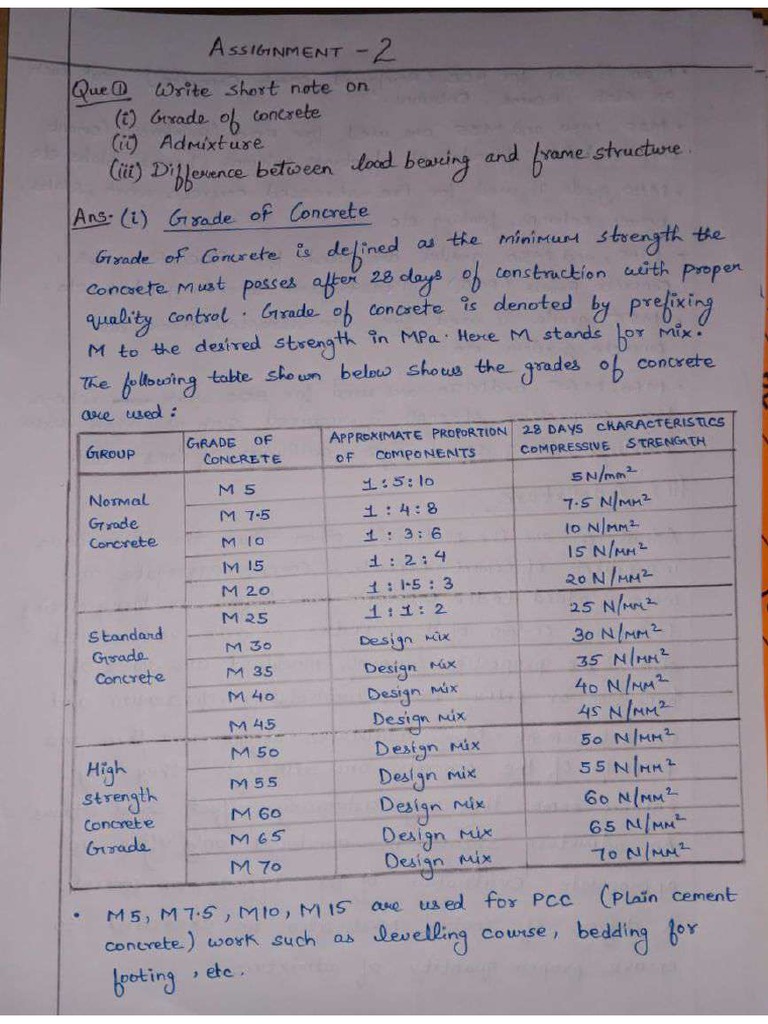 ASSIGNMENT - 2
Que ① Write short note on
(i) Grade of concrete
(ii) Admixture
(iii) Difference between load bearing and frame structure.
Ans- (i) Grade of Concrete
Grade of Concrete is defined as the minimum strength the
concrete must posses after 28 days of construction with proper
quality control. Grade of concrete is denoted by prefixing
M to the desired strength in MPa. Here M stands for Mix.
The following table shown below shows the grades of concrete
are used :
GROUP | GRADE OF CONCRETE | APPROXIMATE PROPORTION OF COMPONENTS | 28 DAYS CHARACTERISTICS COMPRESSIVE STRENGTH
Normal Grade Concrete | M 5 | 1 : 5 : 10 | 5 N/mm²
M 7.5 | 1 : 4 : 8 | 7.5 N/MM²
M 10 | 1 : 3 : 6 | 10 N/MM²
M 15 | 1 : 2 : 4 | 15 N/MM²
M 20 | 1 : 1.5 : 3 | 20 N/MM²
Standard Grade Concrete | M 25 | 1 : 1 : 2 | 25 N/MM²
M 30 | Design Mix | 30 N/MM²
M 35 | Design Mix | 35 N/MM²
M 40 | Design Mix | 40 N/MM²
M 45 | Design Mix | 45 N/MM²
High Strength Concrete Grade | M 50 | Design Mix | 50 N/MM²
M 55 | Design Mix | 55 N/MM²
M 60 | Design Mix | 60 N/MM²
M 65 | Design Mix | 65 N/MM²
M 70 | Design Mix | 70 N/MM²
• M5, M7.5, M10, M15 are used for PCC (Plain cement
concrete) work such as levelling course, bedding for
footing, etc.